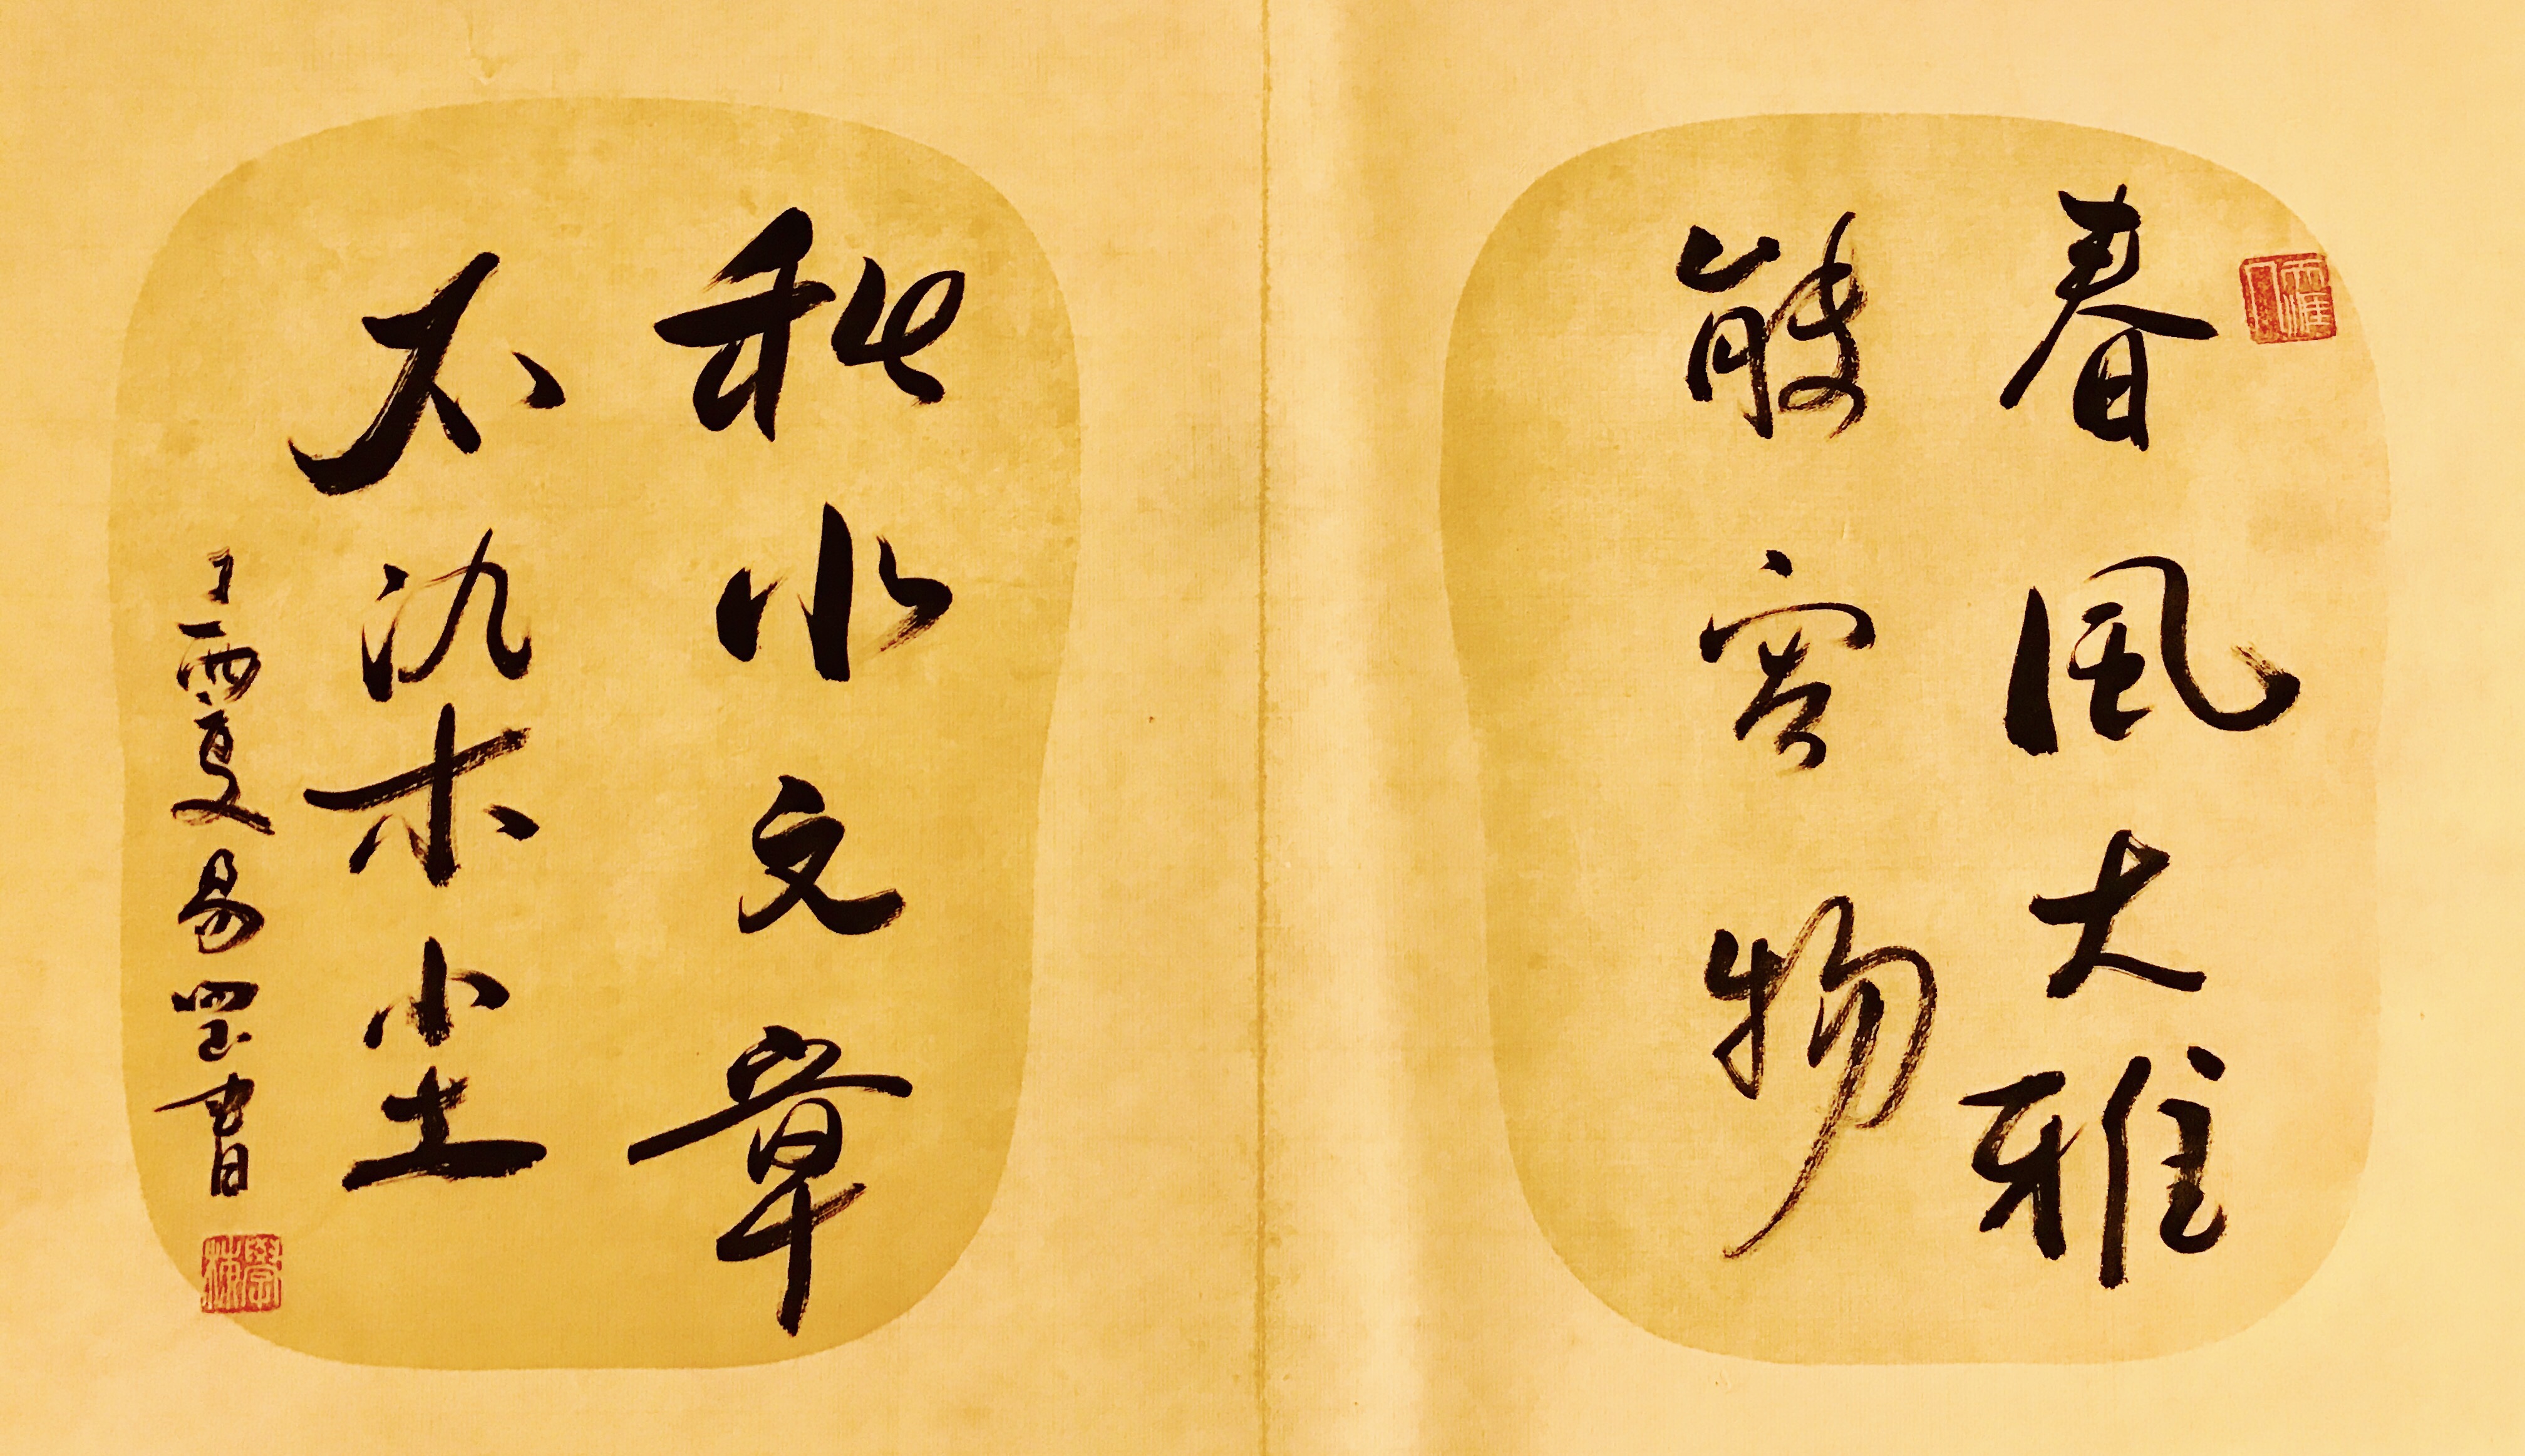 春風大雅
能容物
秋水文章
不染尘
丁酉夏易
書